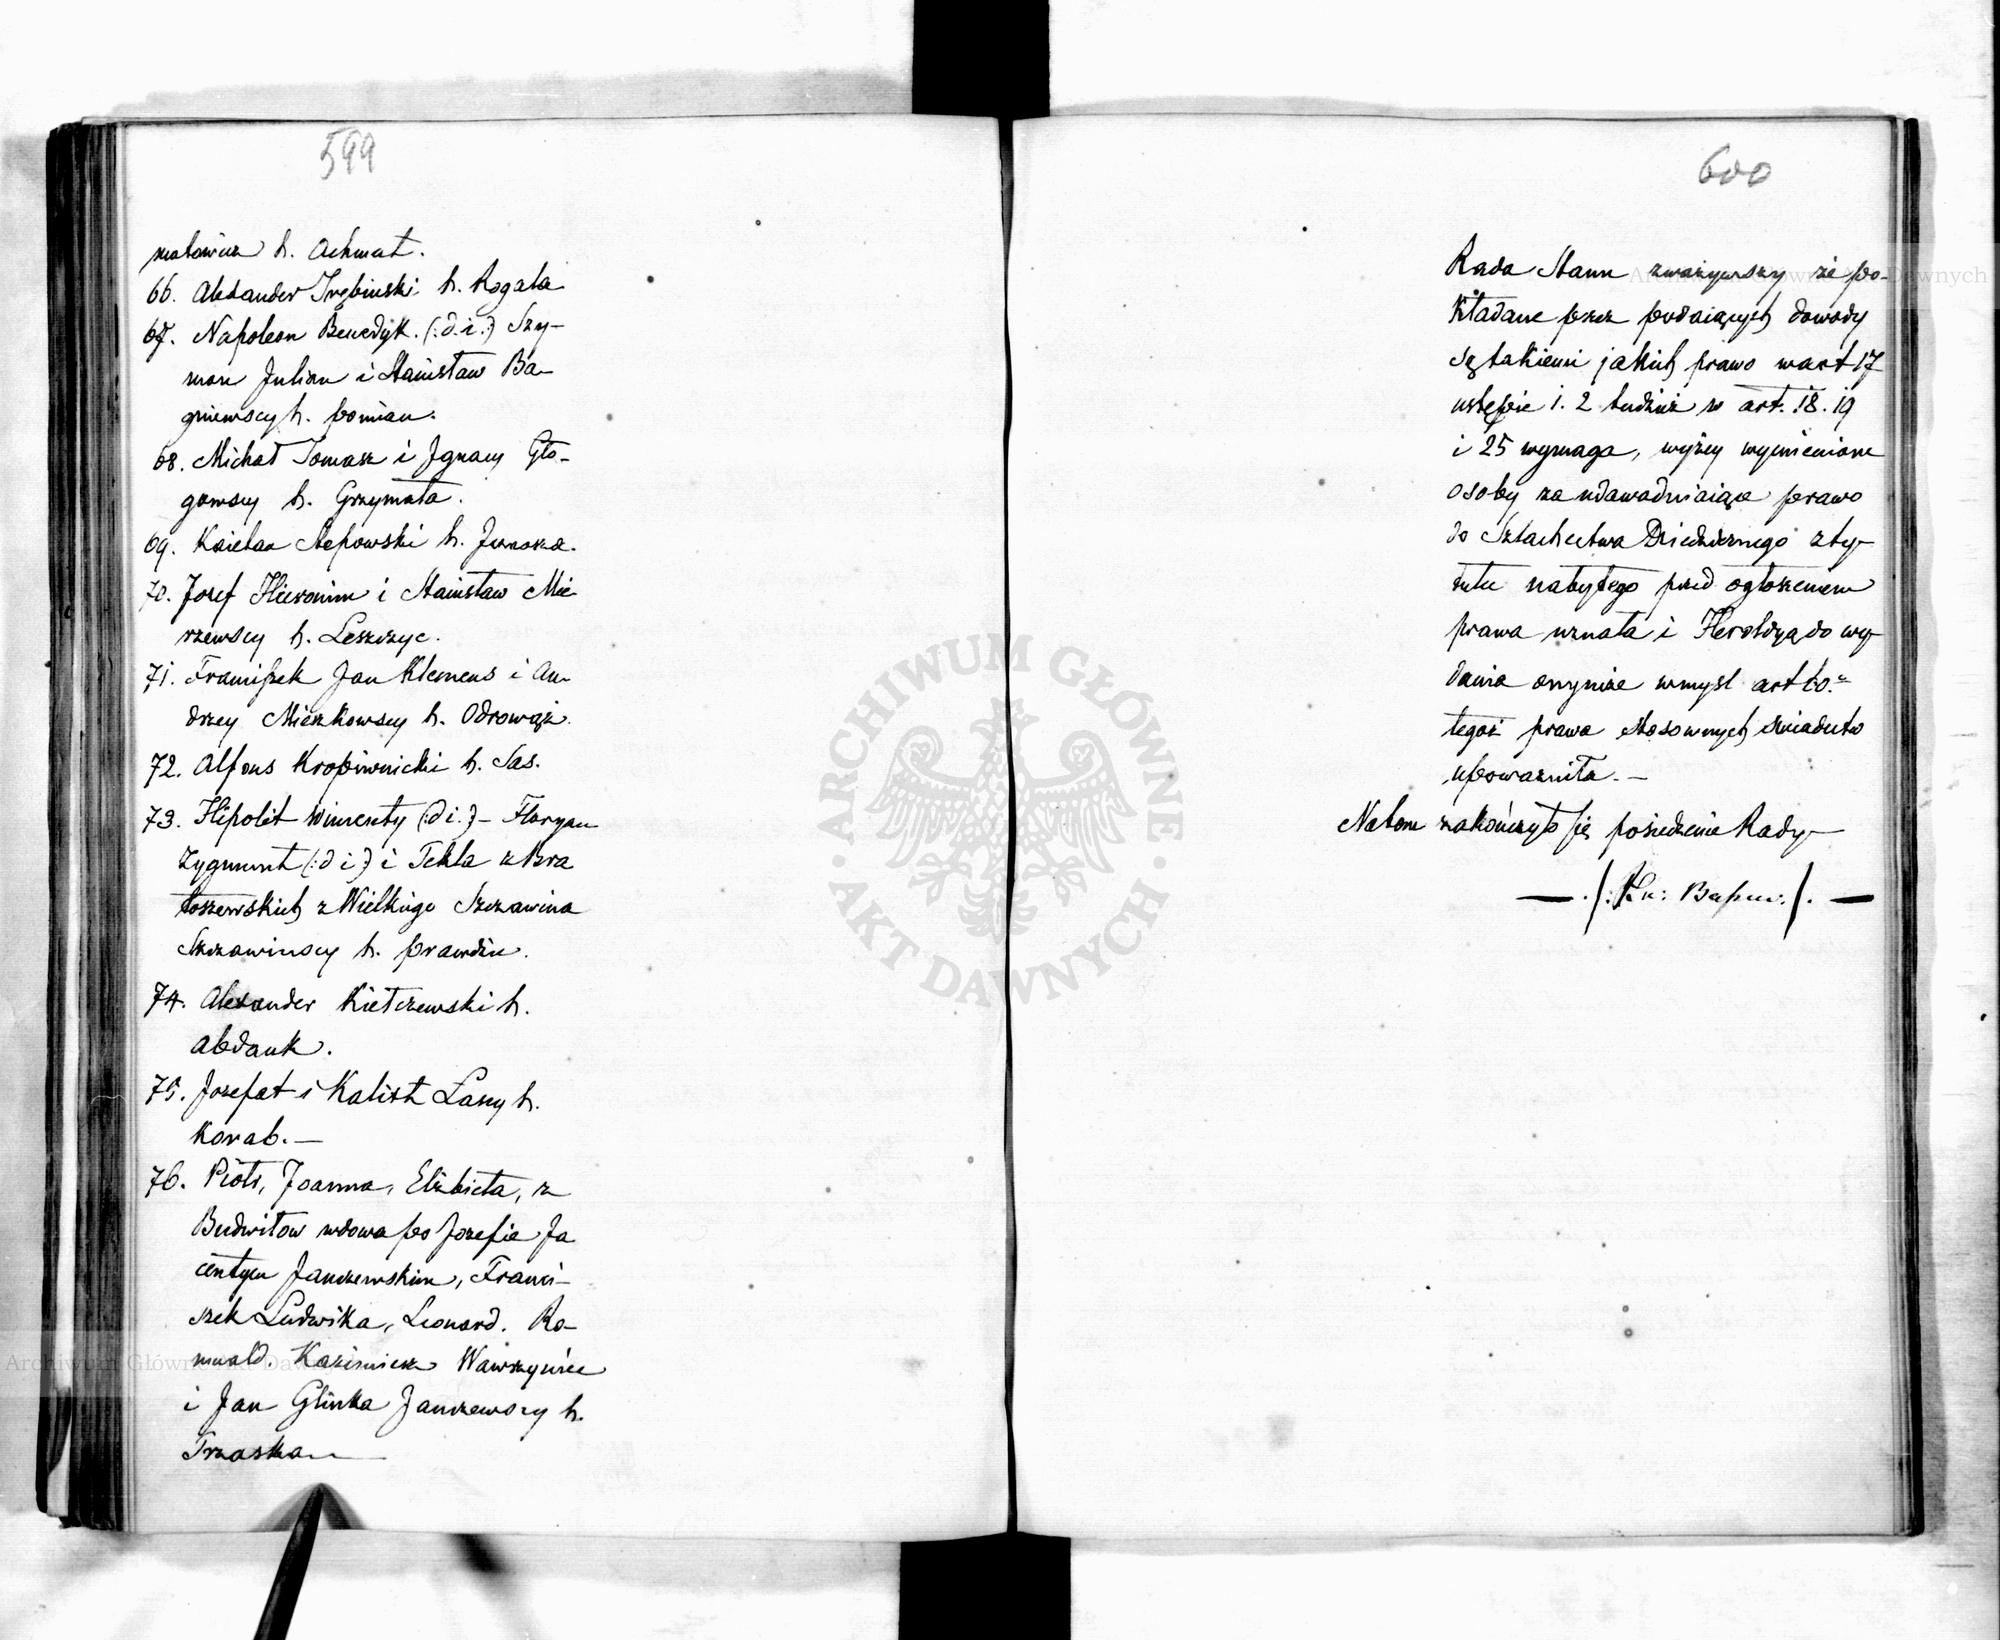 599
matowicz h. Achmat.
66. Alexander Trębinski h. Rogala
67. Napoleon Benedykt (:d.i.:) Szy-
mon Julian i Stanisław Ba-
gniewscy h. Pomian.
68. Michał Tomasz i Ignacy Gło-
gowscy h. Grzymała.
69. Kaietan Stępowski h. Junosza.
70. Jozef Hieronim i Stanisław Mie
rzewscy h. Leszczyc.
71. Franciszek Jan Klemens i An
drzey Mieszkowscy h. Odrowąż.
72. Alfons Kropiwnicki h. Sas.
73. Hipolit Wincenty (:d i:) – Floryan
Zygmunt (:d i:) i Tekla z Bra
toszewskich z Wielkiego Szczawina
Szczawinscy h. Prawdzic.
74. Alexander Kiełczewski h.
Abdank.
75. Jozefat i Kalixt Łascy h.
Korab. —
76. Piotr, Joanna, Elżbieta, z
Budwiłow wdowa po Jozefie Ja
centym Janczewskim, Franci-
szek Ludwika, Leonard. Ro-
muald. Kazimierz Wawrzyniec
i Jan Glinka Janczewscy h.
Trzaska —
600
Rada Stanu zważywszy że po-
kładane przez podaiących dowody
są takiemi jakich prawo w art 17
ustępie 1. 2 tudzież w art. 18. 19
i 25 wymaga, wyżey wymienione
osoby za udawadniaiące prawo
do Szlachectwa Dziedzicznego z ty-
tułu nabytego przed ogłoszeniem
prawa uznała i Heroldyą do wy-
dania onymże w myśl art
tegoż prawa stosownych świadectw
upoważniła. —
Natem zakończyło się posiedzenie Rady —
ARCHIWUM GŁÓWNE
AKT DAWNYCH